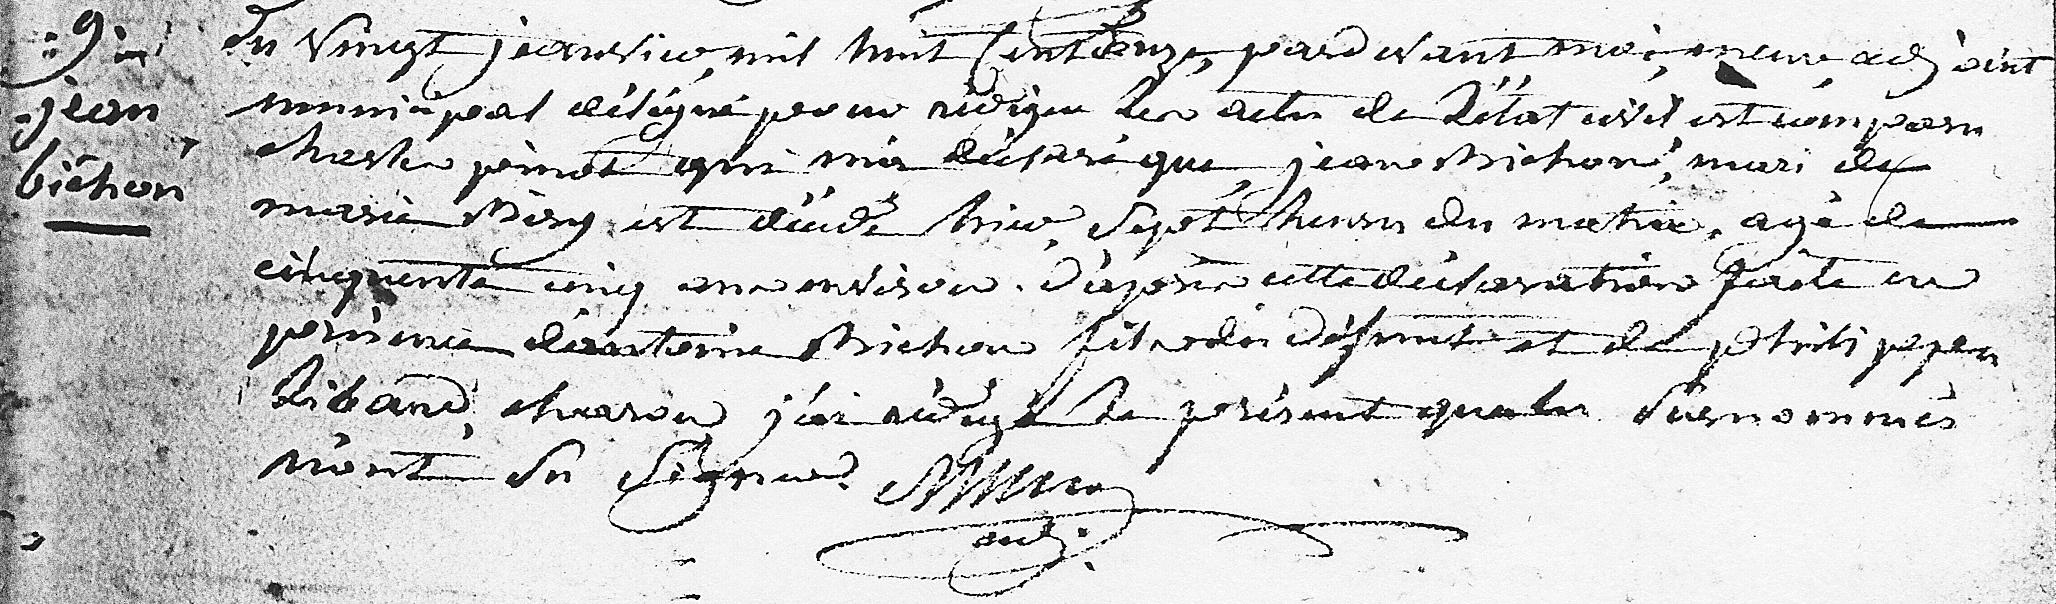 9
jean
biéhon
Du vingt janvier mil huit cent onze, pardevant moi, maire adjoint
municipal délégué pour rédiger les actes de l'état civil est comparu
charles pinot qui m'a déclaré que jean Briehon, mari de
marie est décédé hier, sept heures du matin, agé de
cinquante cinq ans environ. d'après cette déclaration faite en
présence d'antoine Briehon fils du défunt et de philippe
Libaud charon j'ai rédigé le présent que les surnommés
n'ont su signer.
adj.